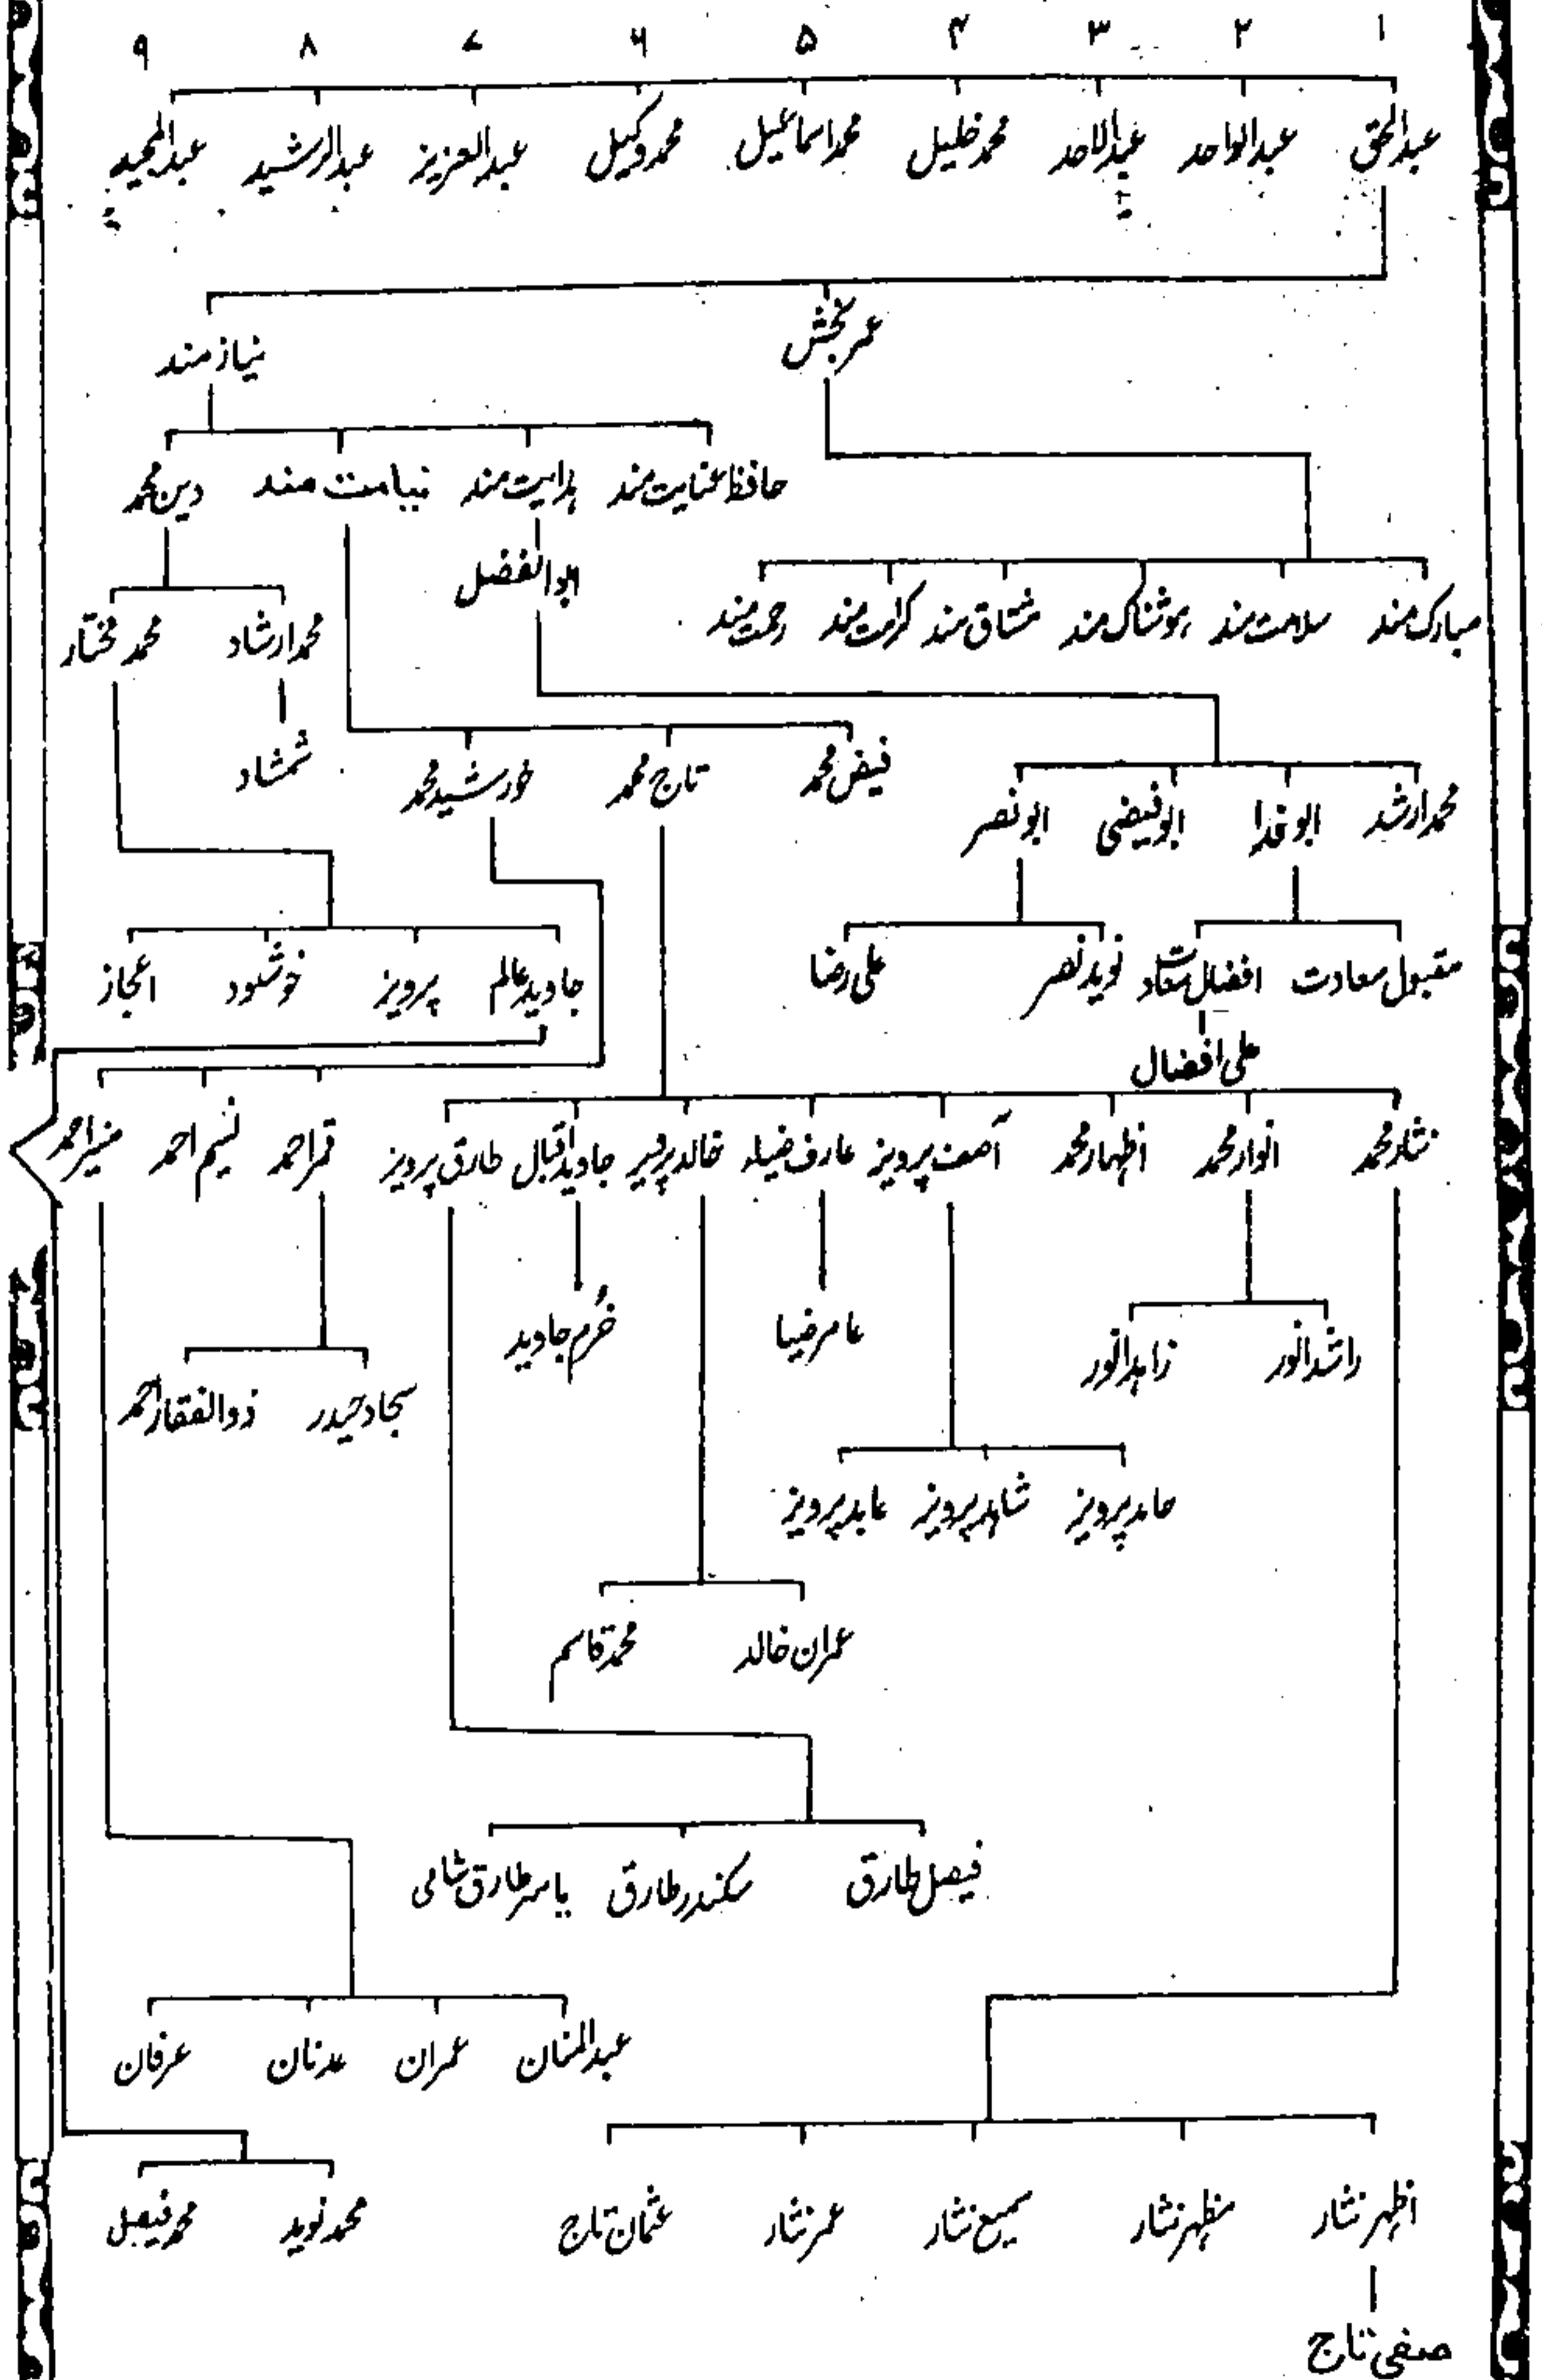 ۱ ۲ ۳ ۴ ۵ ۶ ۷ ۸ ۹
عبدالحق عبدالواحد عبدالاحد محمد خلیل محمد اسماعیل محمد وکیل عبدالعزیز عبدالرشید عبدالمجید
عمر بخش
نیاز مند
حافظ عنایت مند ہدایت مند نیامت مند دین محمد
ابوالفضل
مبارک مند سلامت مند ہوشناک مند مشتاق مند کرامت مند رحمت مند
محمد ارشاد محمد مختار
شمشاد
فیض محمد تاج محمد خورشید محمد
محمد ارشد ابو فدا ابو فیضی ابو نصر
مقبول سعادت افضال سعادت نوید نصر علی رضا
جاوید عالم پرویز خوشنود اعجاز
علی افضال
نثار محمد انوار محمد اظہار محمد آصف پرویز عارف ضیاء خالد پرویز جاوید اقبال طارق پرویز قمر احمد نسیم احمد منیر احمد
راشد انور زاہد انور عامر ضیا خرم جاوید
سجاد حیدر ذوالفقار احمد
حامد پرویز شاہد پرویز عابد پرویز
عمران خالد محمد قاسم
فیصل طارق سکندر طارق یاسر طارق شامی
عبدالمنان عمران عدنان عرفان
اظہر نثار مظہر نثار سمیع نثار عمر نثار عثمان تاج محمد نوید محمد فیصل
صفی تاج